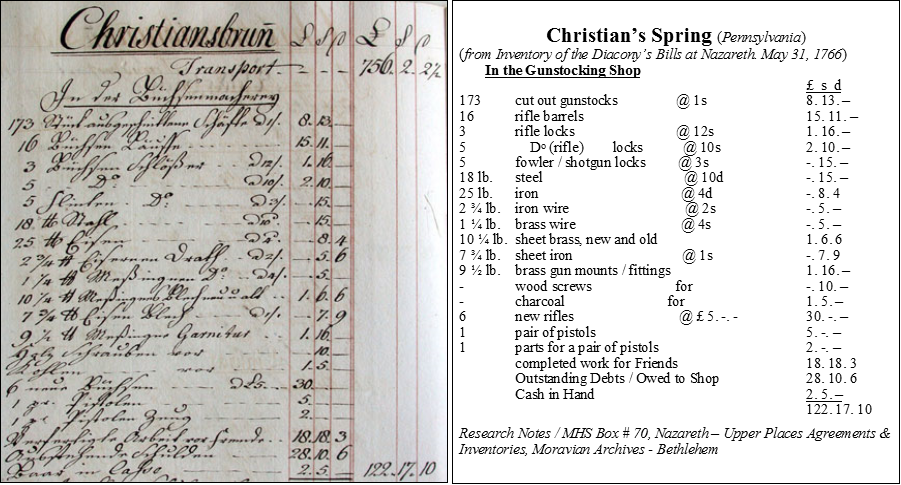 Christiansbrun̄ £ S ₰ £ S ₰
Transport - - - 756. 2. 2½
In der Büchsenmacherey
173 Stück ausgeschnittene Schäfte d 1/. 8. 13. —
16 Büchsen Läuffe 15. 11. —
3 Büchsen Schlößer d 12/. 1. 16. —
5 . Do d 10/. 2. 10. —
5 Flinten . Do d 3/. - 15. —
18 ℔ Stahl - 15. —
25 ℔ Eisen d 4. - 8. 4
2 3/4 ℔ Eisernen Drath d 2/. - 5. 6
1 1/4 ℔ Meßingnen Do d 4/. - 5. —
10 1/4 ℔ Meßingnes Blech neu u alt 1. 6. 6
7 3/4 ℔ Eisen Blech d 1/. - 7. 9
9 1/2 ℔ Meßinge Garnitur 1. 16. —
Holz Schrauben vor - 10. —
Kohlen vor 1. 5. —
6 neue Büchsen d £5. — 30. —
1 pr. Pistolen 5. —
1 pr. Pistolen Zeug 2. —
Verfertigte Arbeit vor Freunde 18. 18. 3
Ausstehende Schulden 28. 10. 6
Baar in Cassa 2. 5. — 122. 17. 10
Christian's Spring (Pennsylvania)
(from Inventory of the Diacony's Bills at Nazareth. May 31, 1766)
In the Gunstocking Shop
£ s d
173 cut out gunstocks @ 1s 8. 13. –
16 rifle barrels 15. 11. –
3 rifle locks @ 12s 1. 16. –
5 Do (rifle) locks @ 10s 2. 10. –
5 fowler / shotgun locks @ 3s -. 15. –
18 lb. steel @ 10d -. 15. –
25 lb. iron @ 4d -. 8. 4
2 ¾ lb. iron wire @ 2s -. 5. –
1 ¼ lb. brass wire @ 4s -. 5. –
10 ¼ lb. sheet brass, new and old 1. 6. 6
7 ¾ lb. sheet iron @ 1s -. 7. 9
9 ½ lb. brass gun mounts / fittings 1. 16. –
- wood screws for -. 10. –
- charcoal for 1. 5. –
6 new rifles @ £ 5. -. - 30. -. –
1 pair of pistols 5. -. –
1 parts for a pair of pistols 2. -. –
completed work for Friends 18. 18. 3
Outstanding Debts / Owed to Shop 28. 10. 6
Cash in Hand 2. 5. –
122. 17. 10
Research Notes / MHS Box # 70, Nazareth – Upper Places Agreements &
Inventories, Moravian Archives - Bethlehem